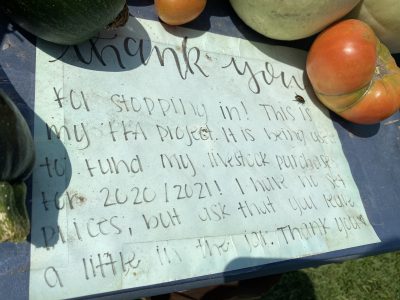 thank you
for stopping in! This is
my FFA project. It is being used
to fund my livestock purchase
for 2020/2021! I have no set
prices, but ask that you leave
a little in the jar. Thank you